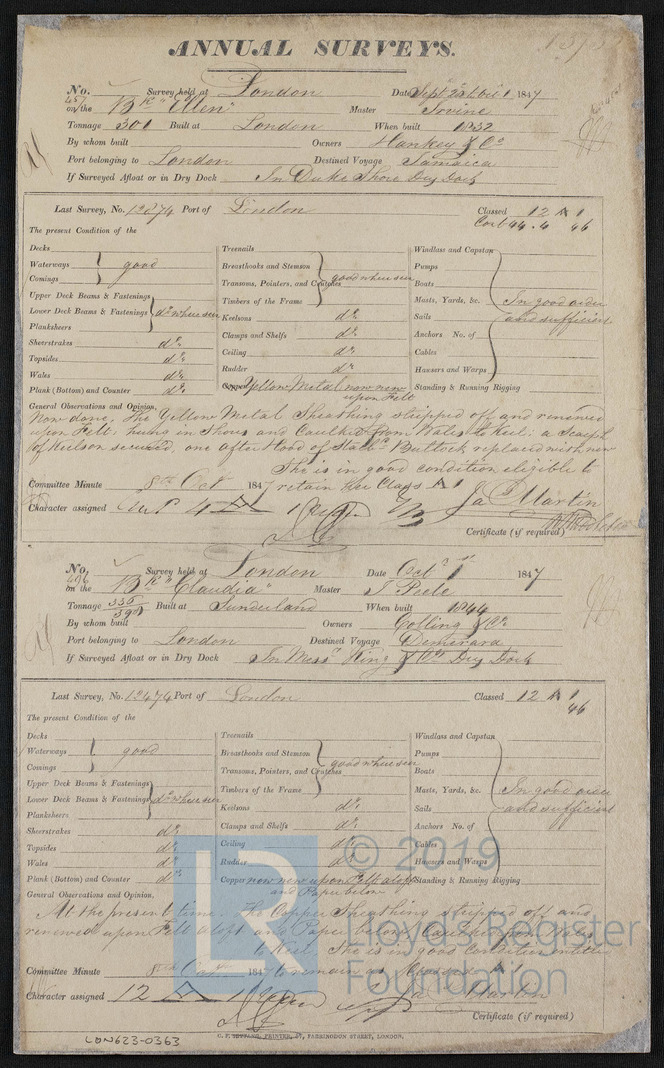 ANNUAL SURVEYS.
No. 457 Survey held at London Date Sept 1847
on the Bk "Ellen" Master Irvine
Tonnage 301 Built at London When built 1832
By whom built Owners Hankey & Co
Port belonging to London Destined Voyage Jamaica
If Surveyed Afloat or in Dry Dock In Duke Shore Dry Dock
Last Survey, No. 12874 Port of London Classed 12 A 1
Cont 44. 4 46
The present Condition of the
Decks
Waterways good
Comings
Upper Deck Beams & Fastenings
Lower Deck Beams & Fastenings do where seen
Planksheers
Sheerstrakes do.
Topsides do.
Wales do.
Plank (Bottom) and Counter do.
Treenails
Breasthooks and Stemson good where seen
Transoms, Pointers, and Crutches
Timbers of the Frame
Keelsons do.
Clamps and Shelfs do.
Ceiling do.
Rudder do.
Copper Yellow Metal now new
upon Felt
Windlass and Capstan
Pumps
Boats
Masts, Yards, &c. In good order
Sails and sufficient
Anchors No. of
Cables
Hawsers and Warps
Standing & Running Rigging
General Observations and Opinion,
Now done, The Yellow Metal Sheathing stripped off and renewed
upon Felt. hung in Shores and Caulked from Wales to Keel: a Scarph
of Keelson secured, one after hood of Starbd Buttock replaced with new
She is in good condition eligible to
Committee Minute 8th Oct 1847 retain her Class A 1
Character assigned A 1 Jas Martin
Certificate (if required)
No. 496 Survey held at London Date Octr 1 1847
on the Bk "Claudia" Master J Peele
Tonnage 335 Built at Sunderland When built 1844
390
By whom built Owners Colling & Co
Port belonging to London Destined Voyage Demerara
If Surveyed Afloat or in Dry Dock In Messrs King & Co Dry Dock
Last Survey, No. 12474 Port of London Classed 12 A 1
46
The present Condition of the
Decks
Waterways good
Comings
Upper Deck Beams & Fastenings
Lower Deck Beams & Fastenings do where seen
Planksheers
Sheerstrakes do.
Topsides do.
Wales do.
Plank (Bottom) and Counter do.
Treenails
Breasthooks and Stemson good where seen
Transoms, Pointers, and Crutches
Timbers of the Frame
Keelsons do.
Clamps and Shelfs do.
Ceiling do.
Rudder do.
Copper now new upon Felt aloft
and Paper below
Windlass and Capstan
Pumps
Boats
Masts, Yards, &c. In good order
Sails and sufficient
Anchors No. of
Cables
Hawsers and Warps
Standing & Running Rigging
General Observations and Opinion,
At the present time. The Copper Sheathing stripped off and
renewed upon Felt aloft and Paper below, Caulked from Wales
to Keel. She is in good condition entitled
Committee Minute 8th Oct 1847 to remain as Classed
Character assigned 12 A 1 Jas Martin
Certificate (if required)
LON623-0363
PRINTER, 57, FARRINGDON STREET, LONDON.
LR
© 2019
Lloyd's Register
Foundation